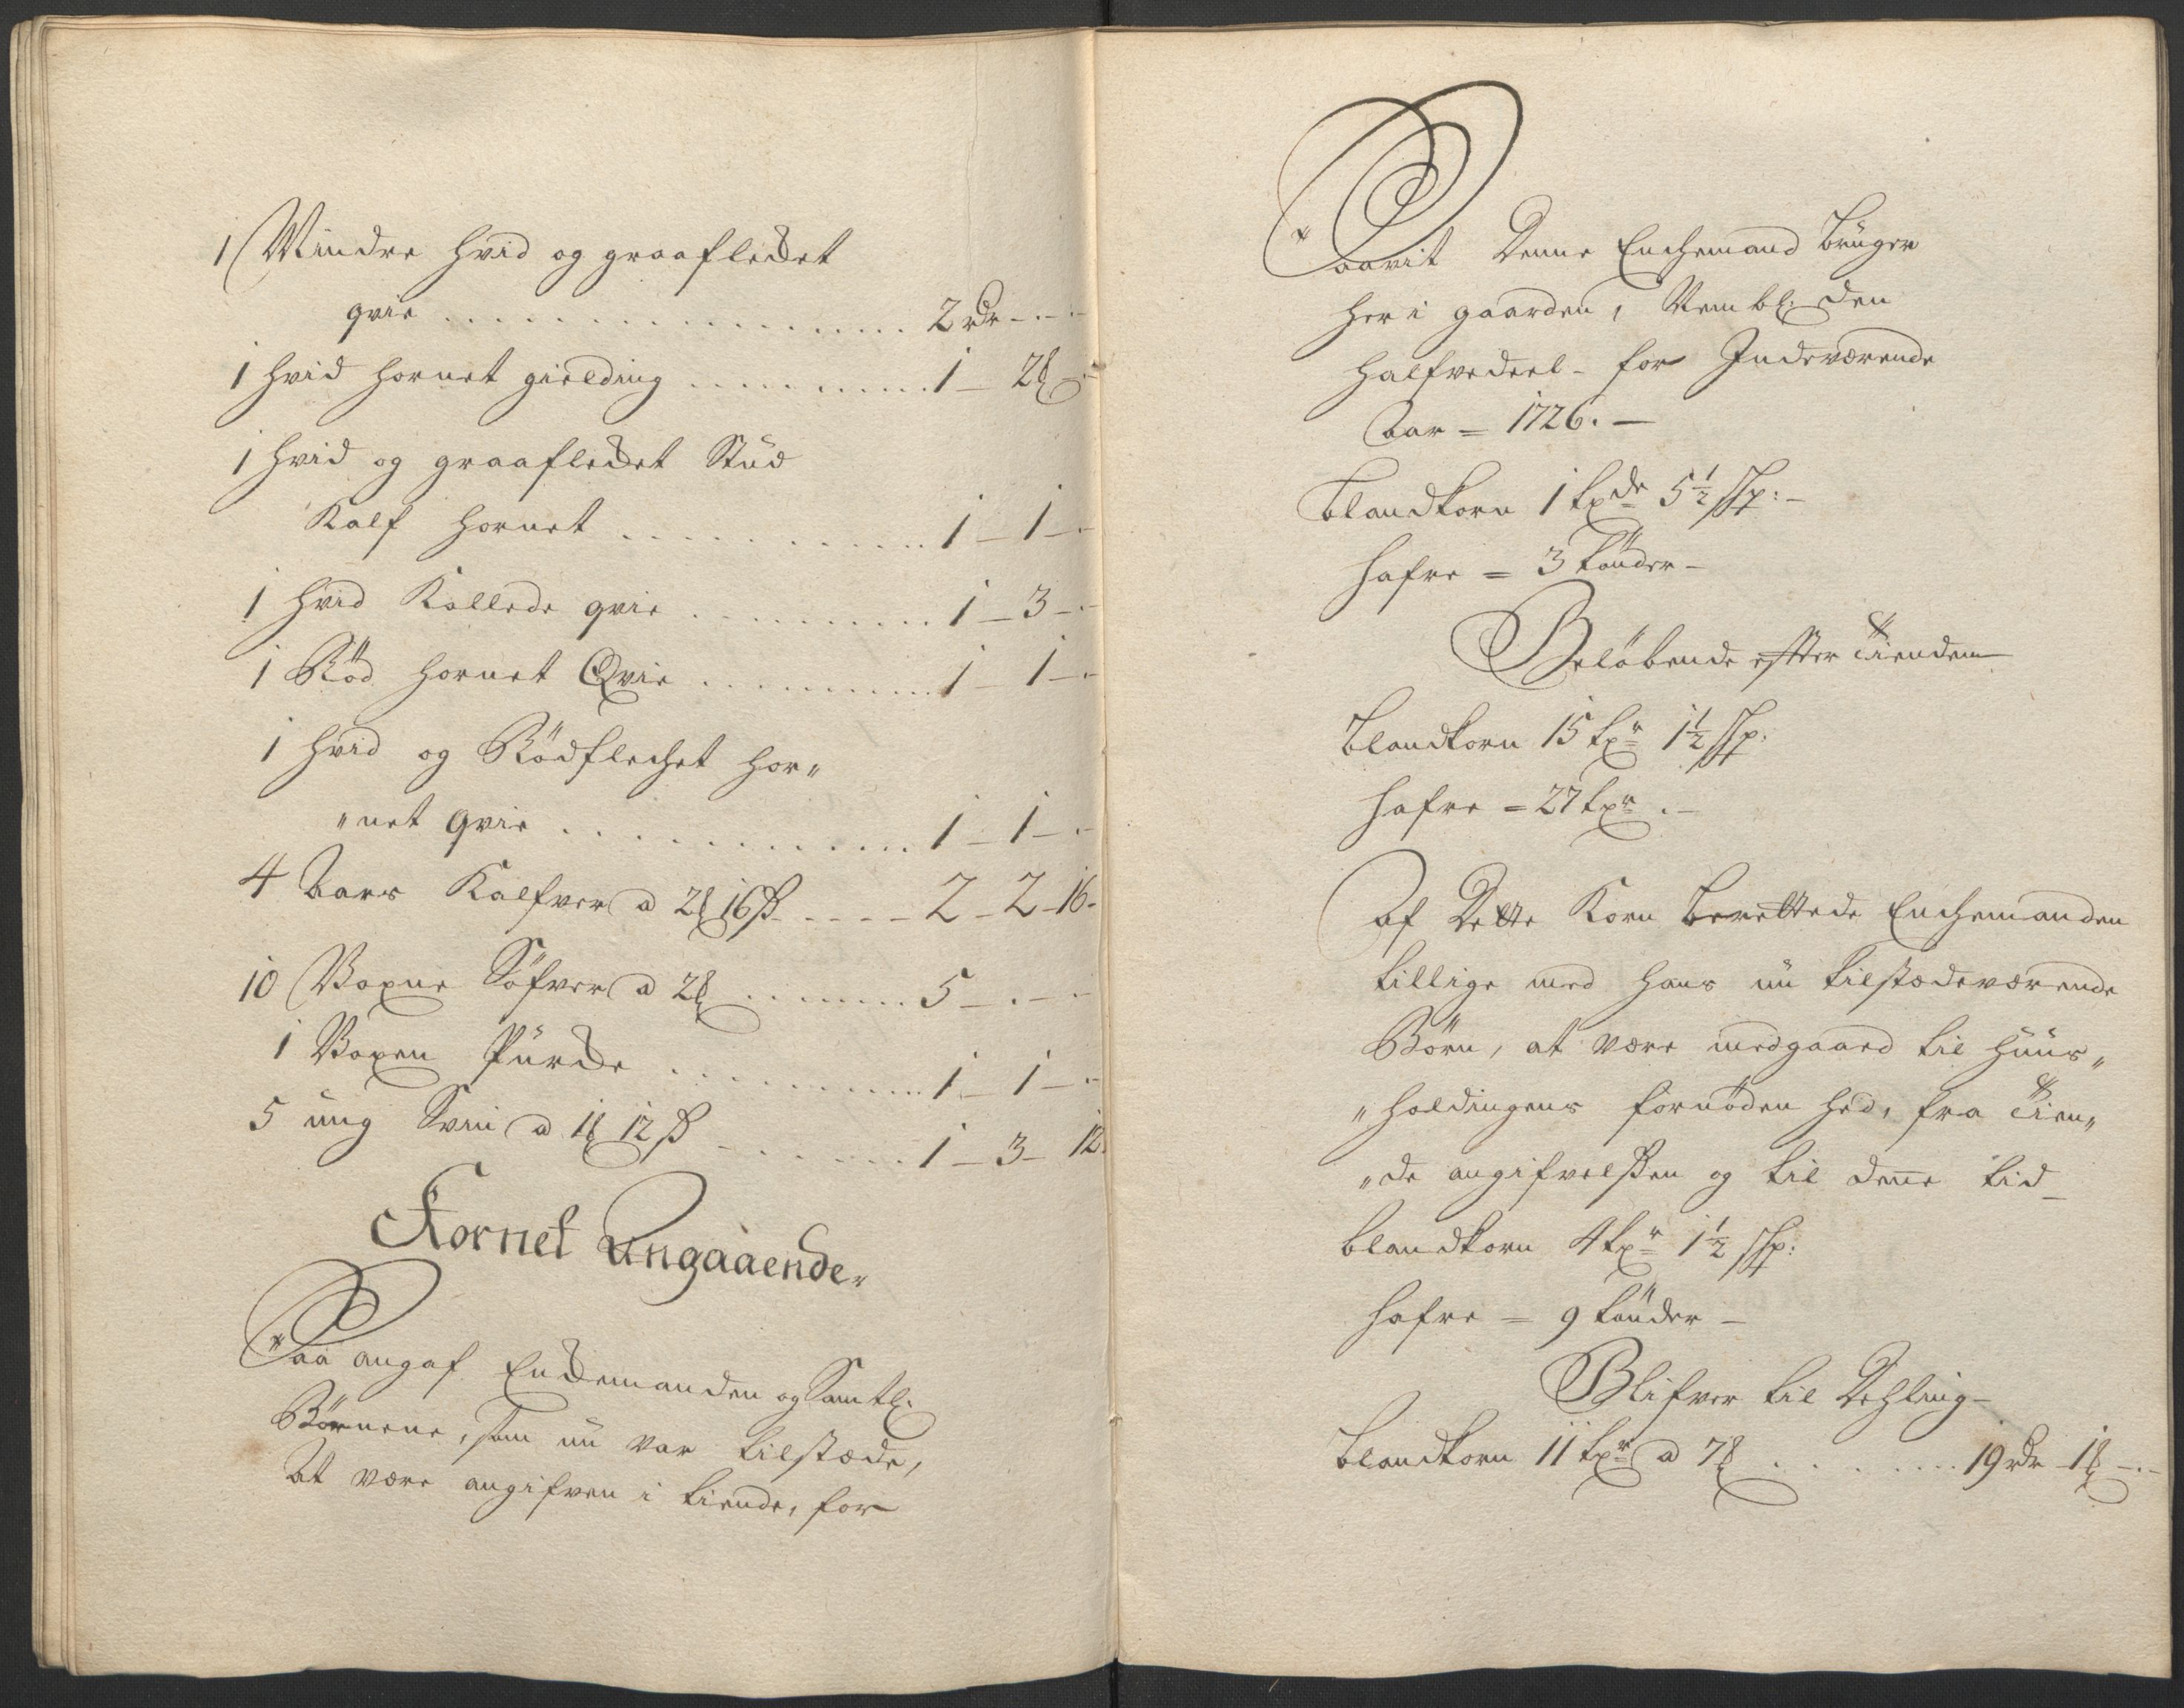 1 Mindre hvid og graaflecket
qvie . . . . . . . . . . 2 rdr - . -
1 hvid hornet gielding . . . . . . 1 - 2 ℔ - . -
1 hvid og graaflecket Stud
Kalf hornet . . . . . . . . 1 - 1 - . -
1 hvid Kollede qvie . . . . . . . 1 - 3 - . -
1 Röd hornet Qvie . . . . . . . . 1 - 1 - . -
1 hvid og Rödflechet hor„
„net qvie . . . . . . . . . . 1 - 1 - . -
4 Aars Kalfver a 2 ℔ 16 ß - . . . - 2 - 2 - 16 -
10 Voxne Söfver a 2 ℔ . . . . . . . 5 - . - . -
1 Voxen Purcke . . . . . . . . 1 - 1 - . -
5 ung Svin a 1 ℔ 12 ß - . . . . . 1 - 3 - 12.
Kornet Angaaende.
Saa angaf Enckemanden og Samtl:
Börnene, som nu var tilstæde,
At være angifven i tiende, for
Saavit Denne Enchemand bruger
her i gaarden, Neml: den
halfvedeel - for Indeværende
Aar = 1726. -
blandkorn 1 tønde 5 1/2 Skp: -
hafre = 3 tönder -
Belöbende efter Tienden
blandkorn 15 tr 1 1/2 Skp:
hafre = 27 tr . -
Af Dette Korn berettede Enchemanden
tillige med hans nu tilstædeværende
Börn, at være medgaaed til huus„
„holdingens fornöden hed, fra Tien„
„de angifvelsen og til denne tid -
blandkorn 4 tr 1 1/2 Skp:
hafre = 9 tönder -
Blifver til Dehling -
blandkorn 11 tr a 7 ℔ . . . . . . 19 rdr - 1 ℔ - . -